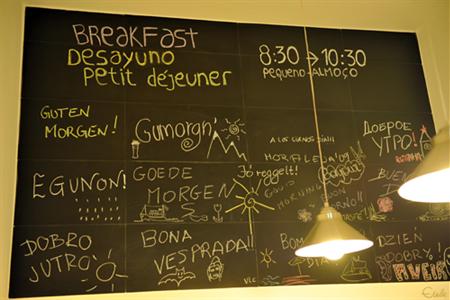 BREAKFAST
DESAYUNO
Petit déjeuner
8:30 → 10:30
PEQUENO-ALMOÇO
GUTEN
MORGEN!
Gumorgn'
ДОБРОЕ
УТРО!
EGUNON!
GOEDE
MORGEN
Jó reggelt!
GOOD
MORNING
BUEN
DOBRO
JUTRO
BONA
VESPRADA!!
VLC
BOM
DIA
DZIEŃ
DOBRY!